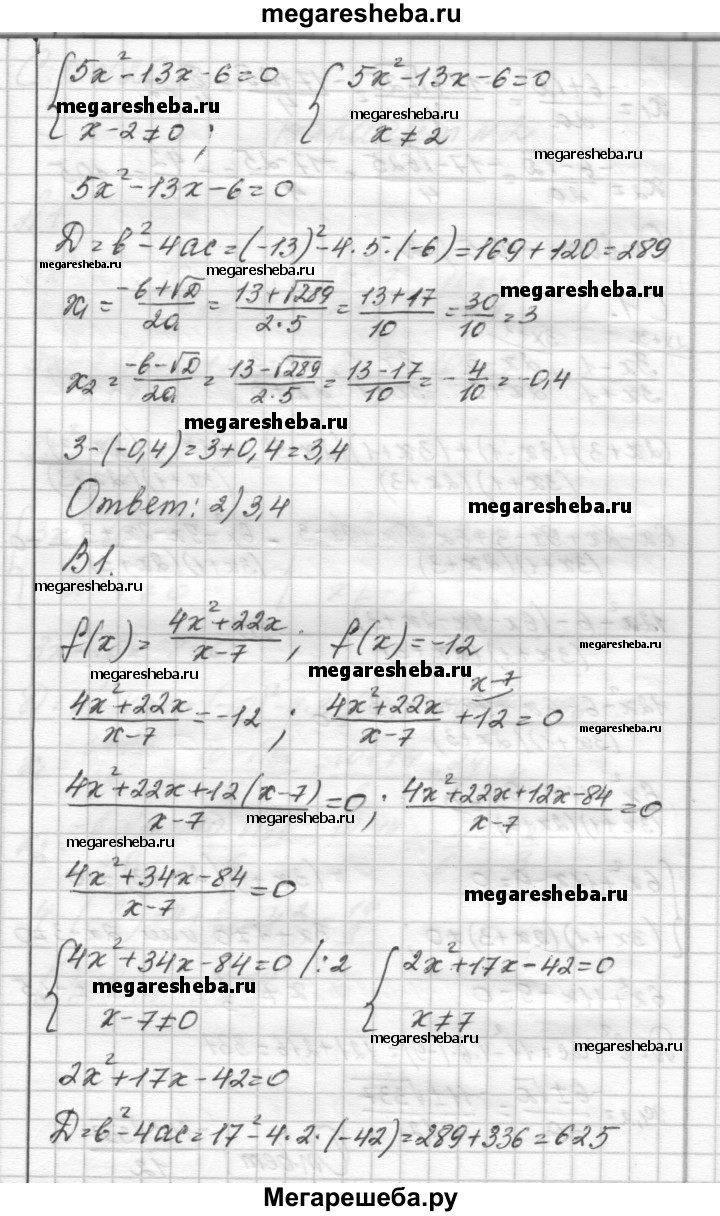 megaresheba.ru
{5x²-13x-6=0 {5x²-13x-6=0
megaresheba.ru megaresheba.ru
x-2≠0; x≠2
megaresheba.ru
5x²-13x-6=0
D=b²-4ac=(-13)²-4·5·(-6)=169+120=289
megaresheba.ru megaresheba.ru
x₁=(-b+√D)/2a=(13+√289)/(2·5)=(13+17)/10=30/10=3
megaresheba.ru
x₂=(-b-√D)/2a=(13-√289)/(2·5)=(13-17)/10=-4/10=-0,4
megaresheba.ru
3-(-0,4)=3+0,4=3,4
Ответ: 2) 3,4
megaresheba.ru
B1.
megaresheba.ru
f(x)=(4x²+22x)/(x-7); f(x)=-12
megaresheba.ru
megaresheba.ru megaresheba.ru
(4x²+22x)/(x-7)=-12; (4x²+22x)/(x-7)+12 (x-7)=0
megaresheba.ru
(4x²+22x+12(x-7))/(x-7)=0; (4x²+22x+12x-84)/(x-7)=0
megaresheba.ru
megaresheba.ru
(4x²+34x-84)/(x-7)=0
megaresheba.ru
{4x²+34x-84=0 /:2 {2x²+17x-42=0
megaresheba.ru
x-7≠0 x≠7
megaresheba.ru megaresheba.ru
2x²+17x-42=0
D=b²-4ac=17²-4·2·(-42)=289+336=625
Мегарешеба.ру